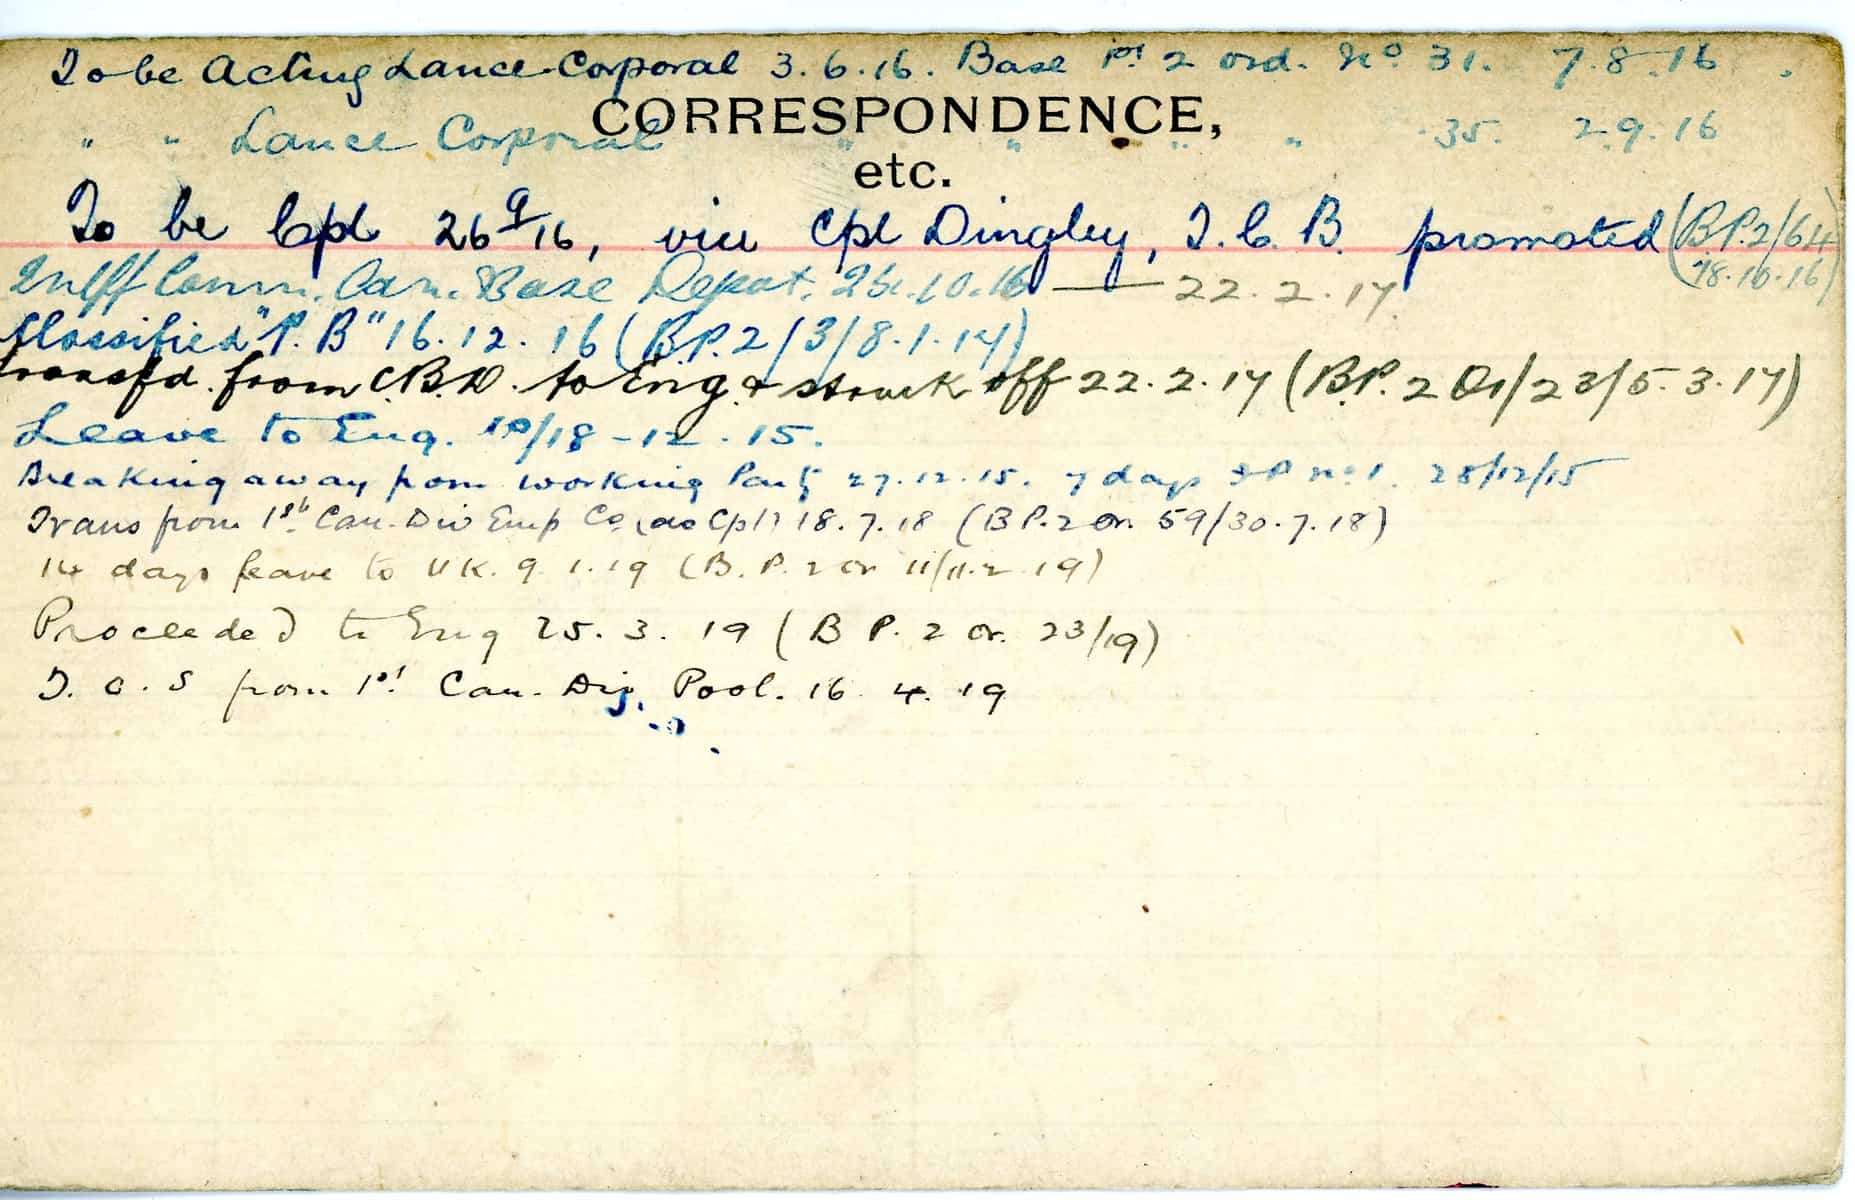 To be Acting Lance Corporal 3.6.16. Base Pt 2 ord. No 31. 7.8.16
CORRESPONDENCE,
" " Lance Corporal " " " " " 35. 2.9.16
etc.
To be Cpl 26 9/16, vice Cpl Dingley, T.C.B. promoted (B.P.2/64
18.10.16)
Comm. Can. Base Depot. 10.16 — 22.2.17
Classified "P.B" 16.12.16 (B.P.2/3/8.1.17)
transfd. from C.B.D. to Eng & struck off 22.2.17 (B.P.2 Or/23/5.3.17)
Leave to Eng. 10/18-12.15.
Breaking away from working Party 27.12.15. 7 days F P No 1. 28/12/15
Trans from 1st Can. Div Emp Co (as Cpl) 18.7.18 (B P.2 Or. 59/30.7.18)
14 days leave to UK. 9.1.19 (B.P.2 Or 11/11.2.19)
Proceeded to Eng 25.3.19 (B P.2 Or. 23/19)
T.O.S from 1st Can. Div. Pool. 16.4.19